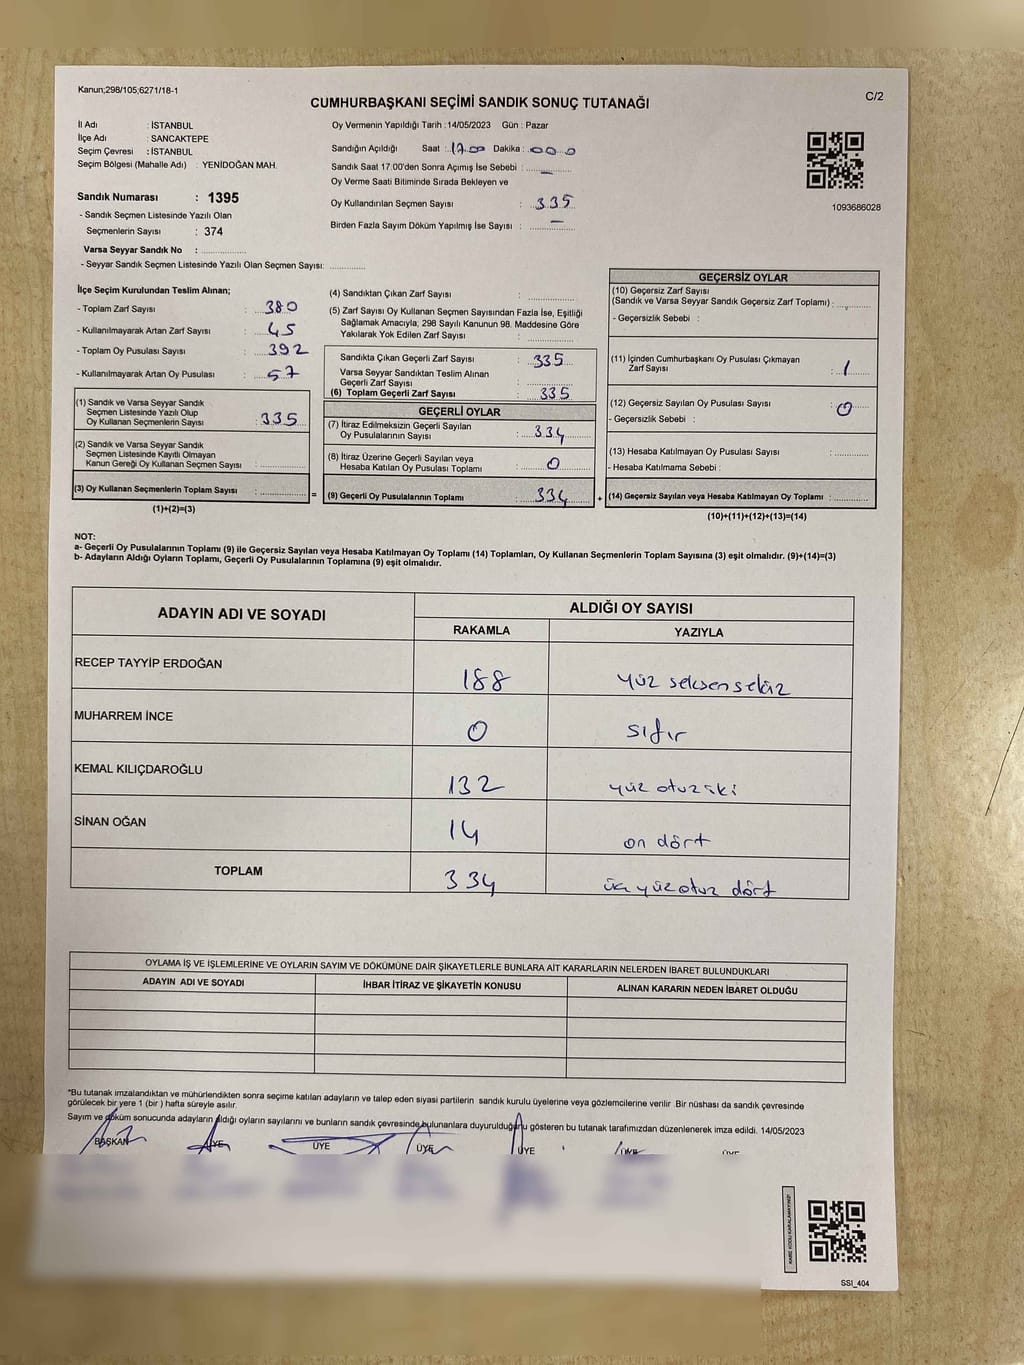 Kanun;298/105;6271/18-1
C/2
CUMHURBAŞKANI SEÇİMİ SANDIK SONUÇ TUTANAĞI
İl Adı : İSTANBUL
İlçe Adı : SANCAKTEPE
Seçim Çevresi : İSTANBUL
Seçim Bölgesi (Mahalle Adı) : YENİDOĞAN MAH.
Sandık Numarası : 1395
- Sandık Seçmen Listesinde Yazılı Olan
Seçmenlerin Sayısı : 374
Varsa Seyyar Sandık No :
- Seyyar Sandık Seçmen Listesinde Yazılı Olan Seçmen Sayısı:
Oy Vermenin Yapıldığı Tarih :14/05/2023 Gün : Pazar
Sandığın Açıldığı Saat : 17.00 Dakika : 000
Sandık Saat 17:00'den Sonra Açımış İse Sebebi : –
Oy Verme Saati Bitiminde Sırada Bekleyen ve
Oy Kullandırılan Seçmen Sayısı : 335
Birden Fazla Sayım Döküm Yapılmış İse Sayısı : –
1093686028
İlçe Seçim Kurulundan Teslim Alınan;
- Toplam Zarf Sayısı : 380
- Kullanılmayarak Artan Zarf Sayısı : 45
- Toplam Oy Pusulası Sayısı : 392
- Kullanılmayarak Artan Oy Pusulası : 57
(1) Sandık ve Varsa Seyyar Sandık
Seçmen Listesinde Yazılı Olup
Oy Kullanan Seçmenlerin Sayısı : 335
(2) Sandık ve Varsa Seyyar Sandık
Seçmen Listesinde Kayıtlı Olmayan
Kanun Gereği Oy Kullanan Seçmen Sayısı :
(3) Oy Kullanan Seçmenlerin Toplam Sayısı : =
(1)+(2)=(3)
(4) Sandıktan Çıkan Zarf Sayısı :
(5) Zarf Sayısı Oy Kullanan Seçmen Sayısından Fazla İse, Eşitliği
Sağlamak Amacıyla; 298 Sayılı Kanunun 98. Maddesine Göre
Yakılarak Yok Edilen Zarf Sayısı :
Sandıkta Çıkan Geçerli Zarf Sayısı : 335
Varsa Seyyar Sandıktan Teslim Alınan
Geçerli Zarf Sayısı :
(6) Toplam Geçerli Zarf Sayısı : 335
GEÇERLİ OYLAR
(7) İtiraz Edilmeksizin Geçerli Sayılan
Oy Pusulalarının Sayısı : 334
(8) İtiraz Üzerine Geçerli Sayılan veya
Hesaba Katılan Oy Pusulası Toplamı : 0
(9) Geçerli Oy Pusulalarının Toplamı : 334 +
GEÇERSİZ OYLAR
(10) Geçersiz Zarf Sayısı
(Sandık ve Varsa Seyyar Sandık Geçersiz Zarf Toplamı) :
- Geçersizlik Sebebi :
(11) İçinden Cumhurbaşkanı Oy Pusulası Çıkmayan
Zarf Sayısı : 1
(12) Geçersiz Sayılan Oy Pusulası Sayısı : 0
- Geçersizlik Sebebi :
(13) Hesaba Katılmayan Oy Pusulası Sayısı :
- Hesaba Katılmama Sebebi :
(14) Geçersiz Sayılan veya Hesaba Katılmayan Oy Toplamı :
(10)+(11)+(12)+(13)=(14)
NOT:
a- Geçerli Oy Pusulalarının Toplamı (9) ile Geçersiz Sayılan veya Hesaba Katılmayan Oy Toplamı (14) Toplamları, Oy Kullanan Seçmenlerin Toplam Sayısına (3) eşit olmalıdır. (9)+(14)=(3)
b- Adayların Aldığı Oyların Toplamı, Geçerli Oy Pusulalarının Toplamına (9) eşit olmalıdır.
ADAYIN ADI VE SOYADI
ALDIĞI OY SAYISI
RAKAMLA YAZIYLA
RECEP TAYYİP ERDOĞAN 188 yüz seksen sekiz
MUHARREM İNCE 0 sıfır
KEMAL KILIÇDAROĞLU 132 yüz otuz iki
SİNAN OĞAN 14 on dört
TOPLAM 334 üç yüz otuz dört
OYLAMA İŞ VE İŞLEMLERİNE VE OYLARIN SAYIM VE DÖKÜMÜNE DAİR ŞİKAYETLERLE BUNLARA AİT KARARLARIN NELERDEN İBARET BULUNDUKLARI
ADAYIN ADI VE SOYADI İHBAR İTİRAZ VE ŞİKAYETİN KONUSU ALINAN KARARIN NEDEN İBARET OLDUĞU
*Bu tutanak imzalandıktan ve mühürlendikten sonra seçime katılan adayların ve talep eden siyasi partilerin sandık kurulu üyelerine veya gözlemcilerine verilir .Bir nüshası da sandık çevresinde
görülecek bir yere 1 (bir ) hafta süreyle asılır.
Sayım ve döküm sonucunda adayların aldığı oyların sayılarını ve bunların sandık çevresinde bulunanlara duyurulduğunu gösteren bu tutanak tarafımızdan düzenlenerek imza edildi. 14/05/2023
BAŞKAN ÜYE ÜYE ÜYE ÜYE ÜYE ÜYE
KARE KODU KARALAMAYINIZ!
SSI_404